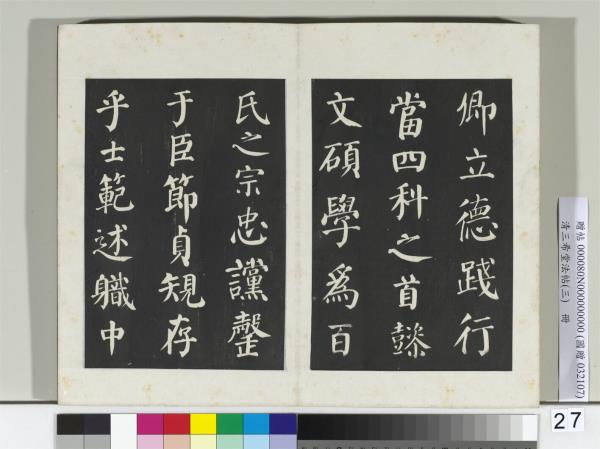 卿立德踐行
當四科之首懿
文碩學爲百
氏之宗忠讜罄
于臣節貞規存
乎士範述軄中
贈帖 000080N000000000 (國贈 032107)
清三希堂法帖(三) 冊
27